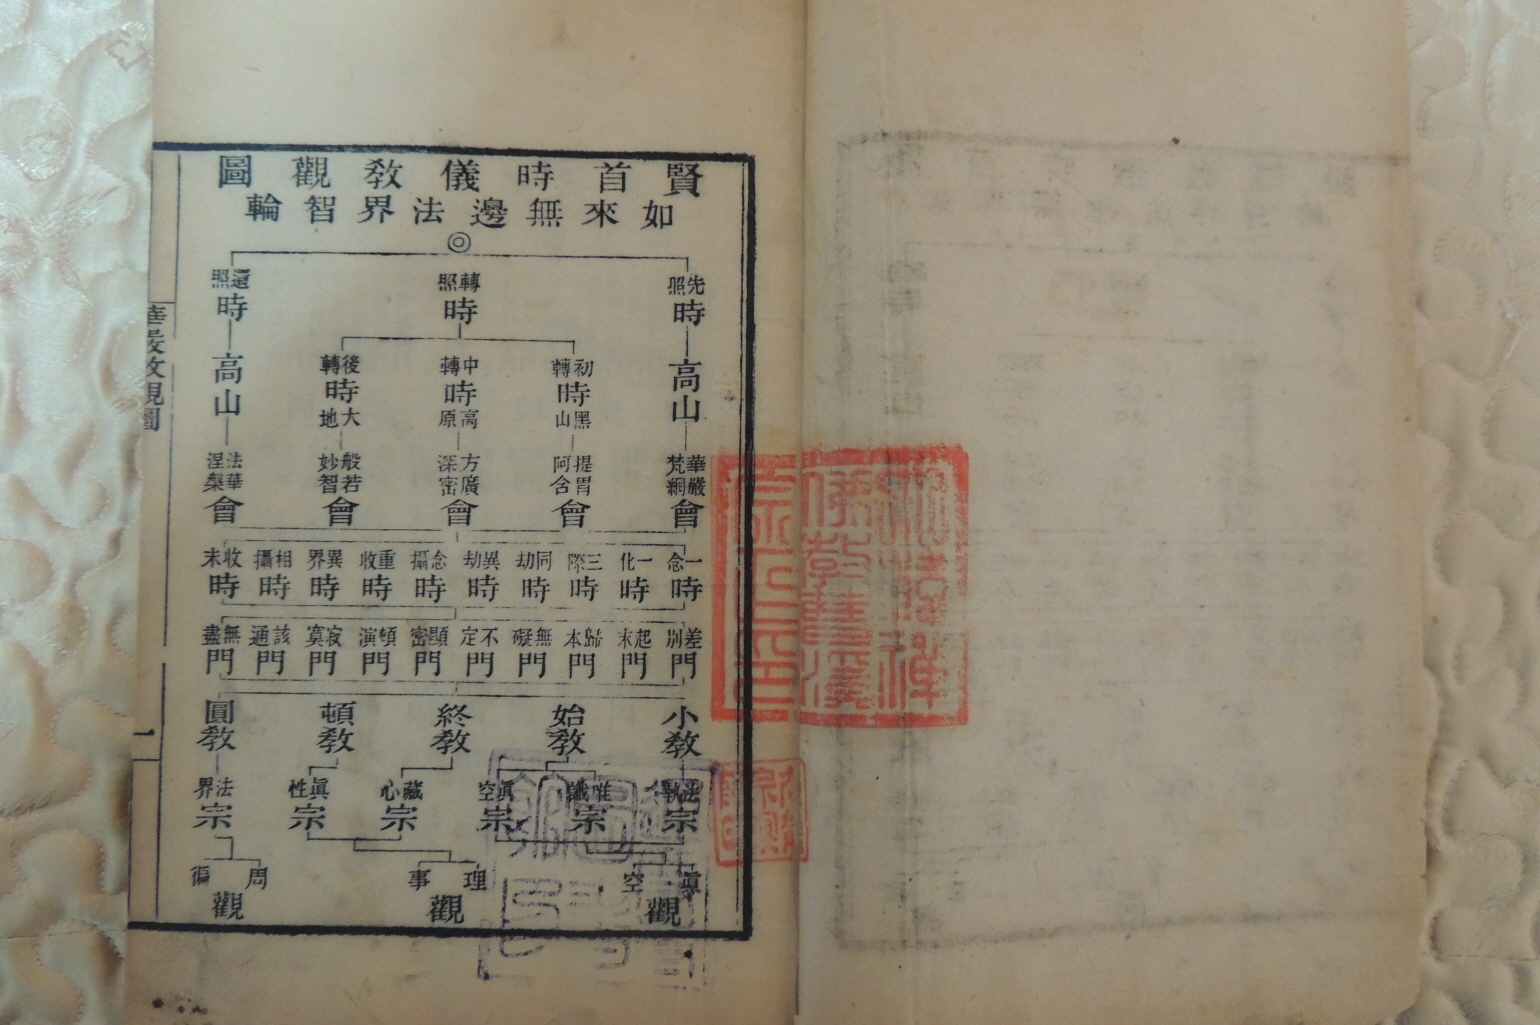 賢首時儀教觀圖
如來無邊法界智輪
先照時 轉照時 還照時
初轉時 中轉時 後轉時
高山 黑山 高原 大地 高山
華嚴梵網會 提胃阿含會 方廣深密會 般若妙智會 法華涅槃會
一念時 一化時 三際時 同劫時 異劫時 念攝時 重收時 異界時 相攝時 收末時
差別門 起末門 歸本門 無礙門 不定門 顯密門 頓演門 寂寞門 該通門 無盡門
小教 始教 終教 頓教 圓教
法執宗 唯識宗 眞空宗 藏心宗 眞性宗 法界宗
眞空觀 理事觀 周徧觀
華嚴教觀圖
一